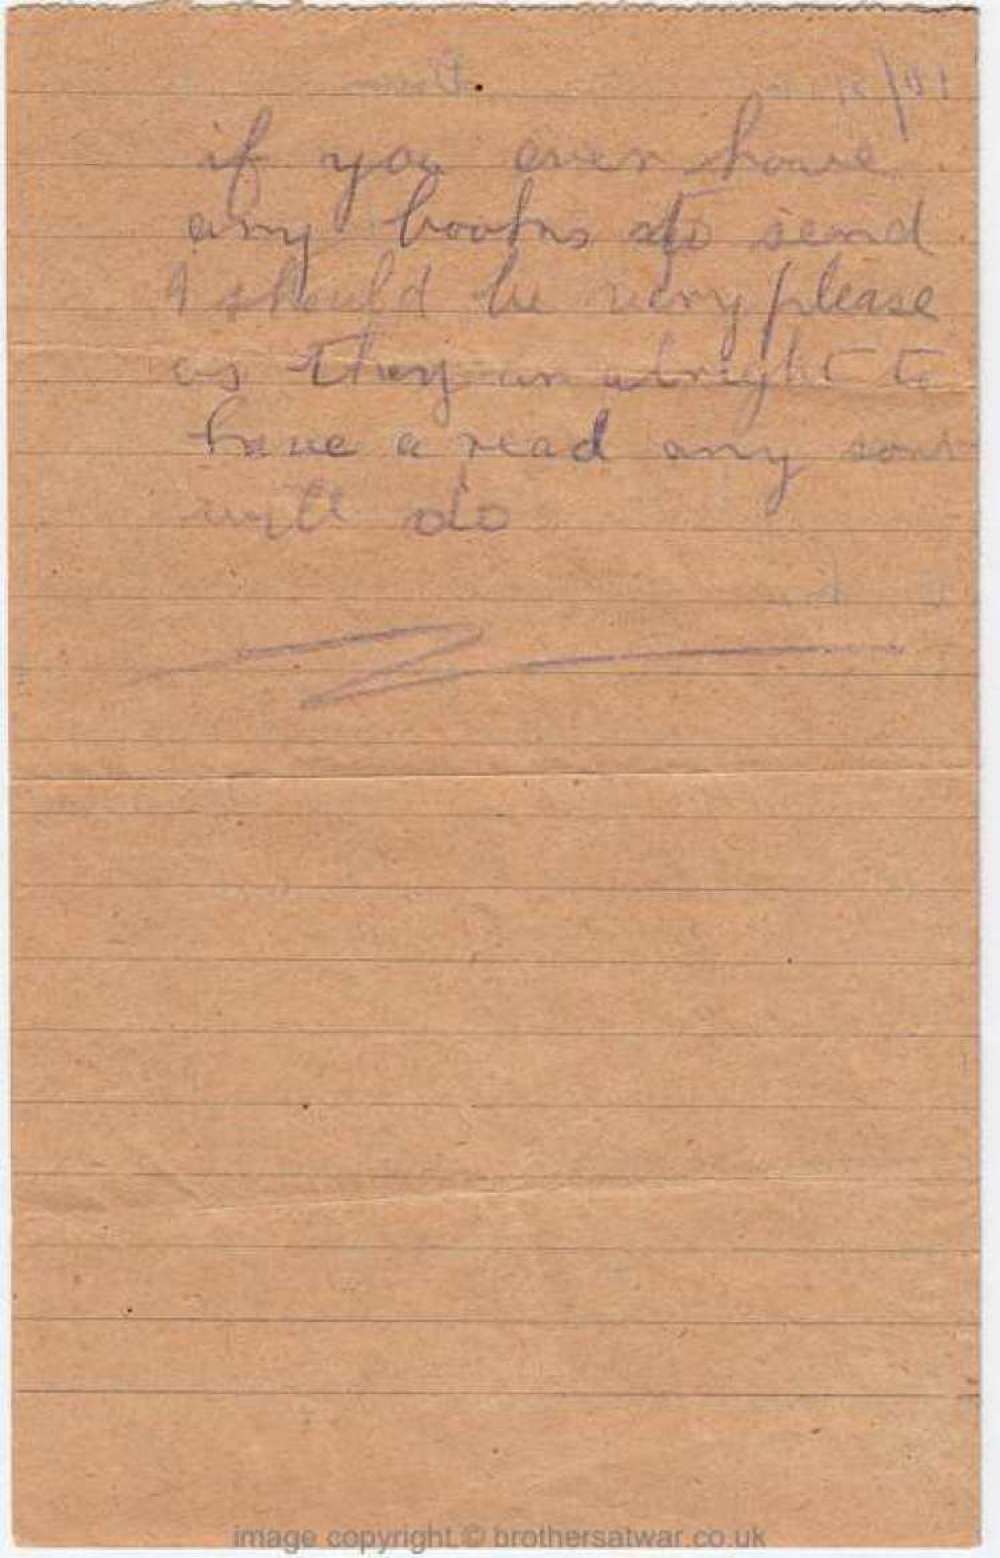 if you ever have
any books to send
I should be very please
as they are alright to
have a read any sort
will do
image copyright © brothersatwar.co.uk